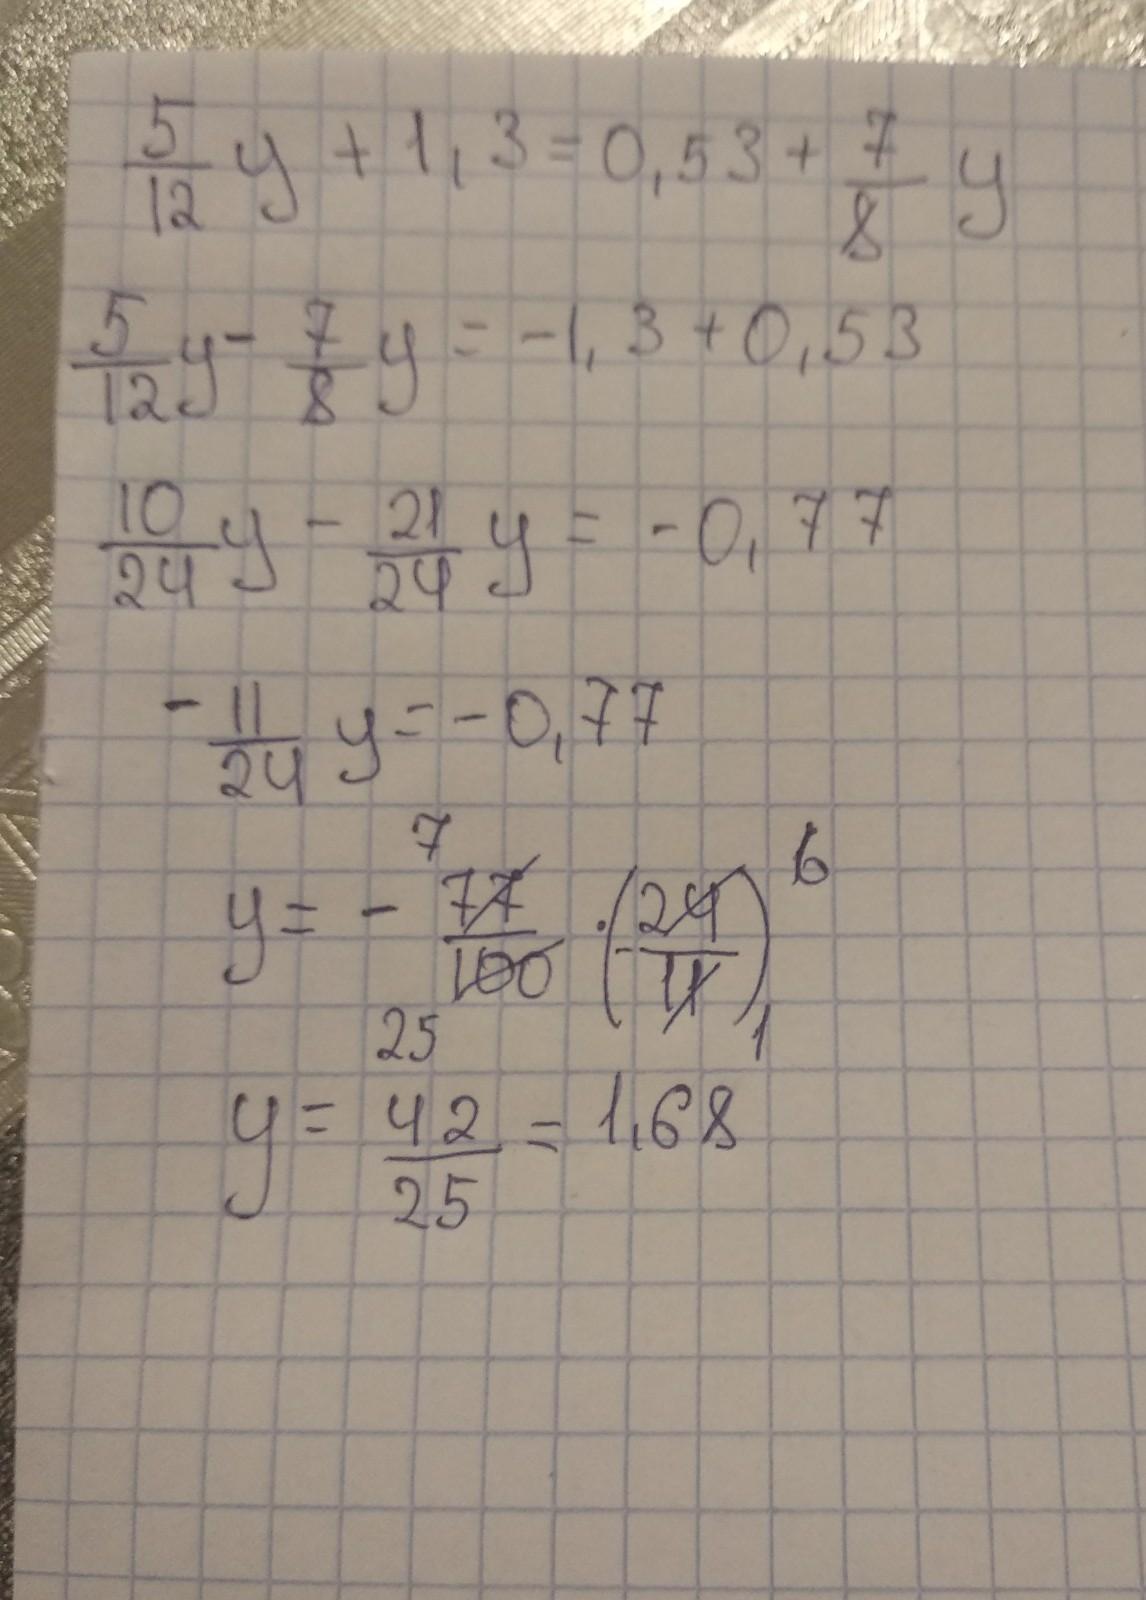 5/12 y + 1,3 = 0,53 + 7/8 y
5/12 y - 7/8 y = -1,3 + 0,53
10/24 y - 21/24 y = -0,77
- 11/24 y = -0,77
7 6
y = - 77/100 · (-24/11)
25 1
y = 42/25 = 1,68